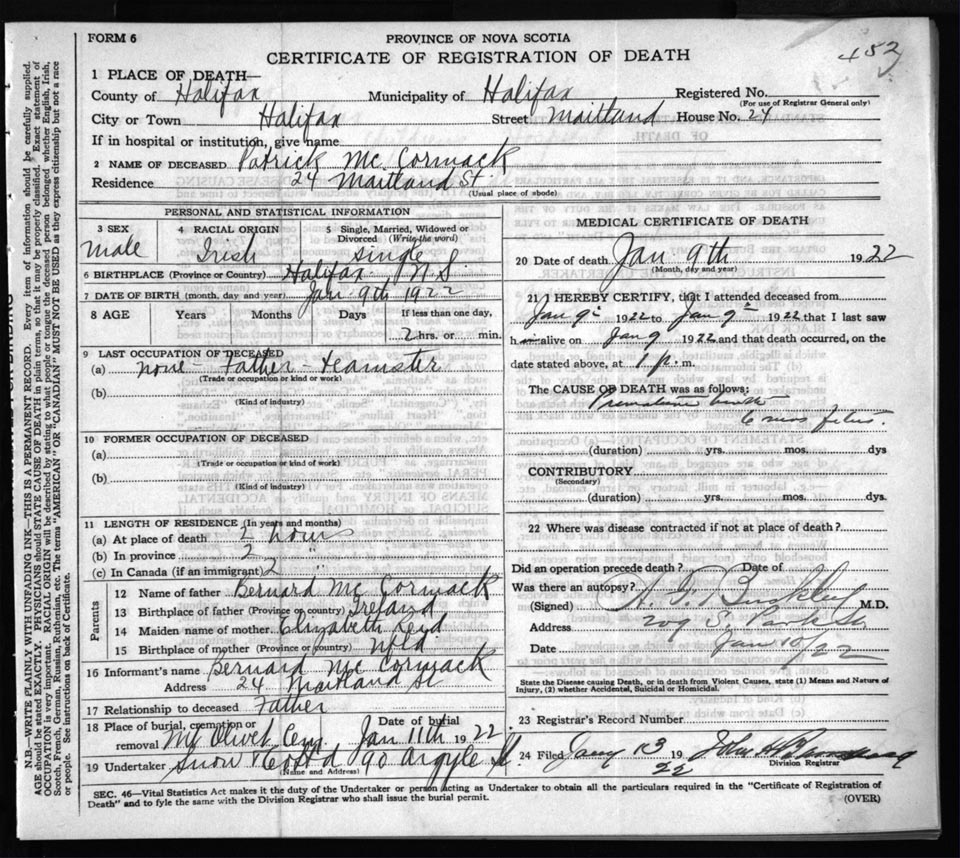 FORM 6
PROVINCE OF NOVA SCOTIA
CERTIFICATE OF REGISTRATION OF DEATH
452
1 PLACE OF DEATH—
County of Halifax Municipality of Halifax Registered No.
(For use of Registrar General only)
City or Town Halifax Street Maitland House No. 24
If in hospital or institution, give name
2 NAME OF DECEASED Patrick Mc Cormack
Residence 24 Maitland St
(Usual place of abode)
PERSONAL AND STATISTICAL INFORMATION
3 SEX 4 RACIAL ORIGIN 5 Single, Married, Widowed or
Divorced (Write the word)
male Irish single
6 BIRTHPLACE (Province or Country) Halifax N.S.
7 DATE OF BIRTH (month, day and year) Jan 9th 1922
8 AGE Years Months Days If less than one day,
2 hrs. or min.
9 LAST OCCUPATION OF DECEASED
(a) none - Father - teamster
(Trade or occupation or kind or work)
(b)
(Kind of industry)
10 FORMER OCCUPATION OF DECEASED
(a)
(Trade or occupation or kind or work)
(b)
(Kind of industry)
11 LENGTH OF RESIDENCE (In years and months)
(a) At place of death 2 hours
(b) In province 2 "
(c) In Canada (if an immigrant) 2
Parents
12 Name of father Bernard Mc Cormack
13 Birthplace of father (Province or country) Ireland
14 Maiden name of mother Elizabeth Keyd
15 Birthplace of mother (Province or country) Nfld
16 Informant's name Bernard Mc Cormack
Address 24 Maitland St
17 Relationship to deceased Father
18 Place of burial, cremation or Date of burial
removal Mt Olivet Cem Jan 11th 1922
19 Undertaker Snow & Co Ltd 90 Argyle St.
(Name and Address)
MEDICAL CERTIFICATE OF DEATH
20 Date of death Jan 9th 1922
(Month, day and year)
21 I HEREBY CERTIFY, that I attended deceased from
Jan 9th 1922 to Jan 9th 1922 that I last saw
h alive on Jan 9 1922 and that death occurred, on the
date stated above, at 1 p. m.
The CAUSE OF DEATH was as follows:
Premature birth
6 mos fetus.
(duration) yrs. mos. dys
CONTRIBUTORY
(Secondary)
(duration) yrs. mos. dys.
22 Where was disease contracted if not at place of death?
Did an operation precede death? Date of
Was there an autopsy?
(Signed) Buckley M.D.
Address 209 S. Park St.
Date Jan 10/22
State the Disease causing Death, or in Death from Violent Causes, state (1) Means and Nature of
Injury, (2) whether Accidental, Suicidal or Homicidal.
23 Registrar's Record Number
24 Filed Jany 13 19 22 John H
Division Registrar
SEC. 46—Vital Statistics Act makes it the duty of the Undertaker or person acting as Undertaker to obtain all the particulars required in the "Certificate of Registration of
Death" and to fyle the same with the Division Registrar who shall issue the burial permit.
(OVER)
N.B.—WRITE PLAINLY WITH UNFADING INK—THIS IS A PERMANENT RECORD. Every item of information should be carefully supplied.
AGE should be stated EXACTLY. PHYSICIANS should STATE CAUSE OF DEATH in plain terms, so that it may be properly classified. Exact statement of
OCCUPATION is very important. RACIAL ORIGIN will be described by stating to what people or tongue the deceased person belonged whether English, Irish,
Scotch, French, German, Russian, Ruthenian, etc. The terms "AMERICAN" OR "CANADIAN" MUST NOT BE USED as they express citizenship but not a race
or people. See instructions on back of Certificate.